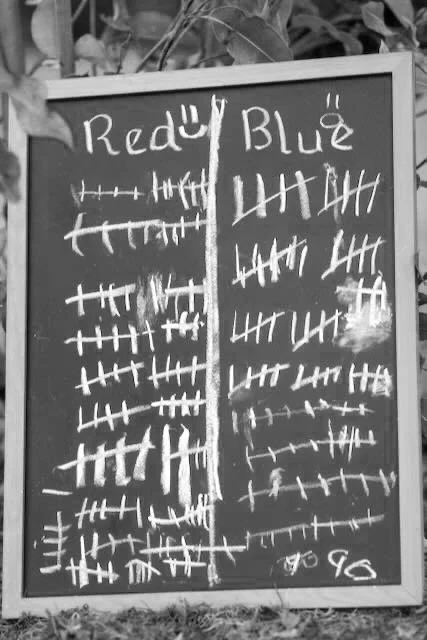 Red Blue
90